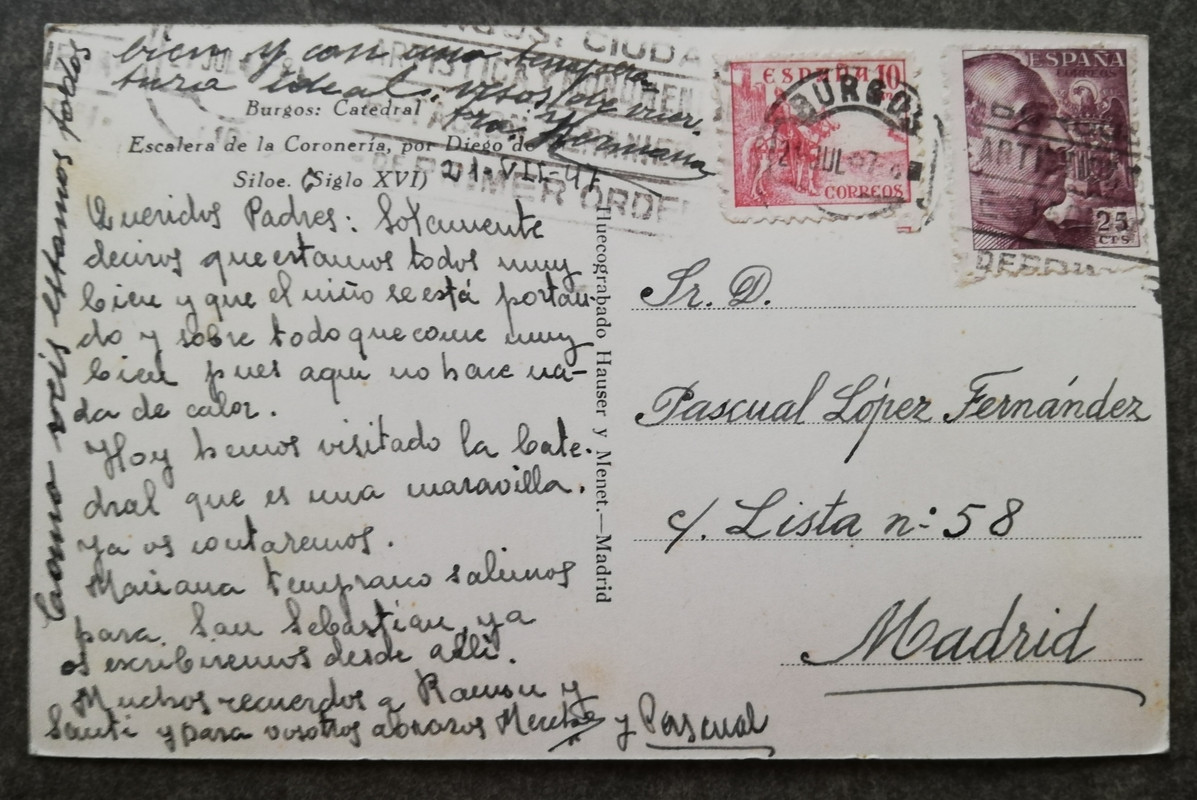 Burgos: Catedral
Escalera de la Coronería, por Diego de
Siloe. (Siglo XVI)
21-VII-47
Queridos Padres: Solamente
deciros que estamos todos muy
bien y que el niño se está portan-
do y sobre todo que come muy
bien pues aquí no hace na-
da de calor.
Hoy hemos visitado la Cate-
dral que es una maravilla.
Ya os contaremos.
Mañana temprano salimos
para San Sebastián, ya
os escribiremos desde allí.
Muchos recuerdos a Ramón y
Santi y para vosotros abrazos y Pascual
Como veis estamos todos
bien y con una tempera
tura ideal. Besos de
Hermana
Huecograbado Hauser y Menet.—Madrid
ESPAÑA 10
CORREOS
BURGOS
21 JUL 47
ESPAÑA
CORREOS
25
CTS
CIUDA
ARTISTICA Y MONUMEN
PRIMER ORDE
Sr. D.
Pascual López Fernández
c/. Lista nº 58
Madrid